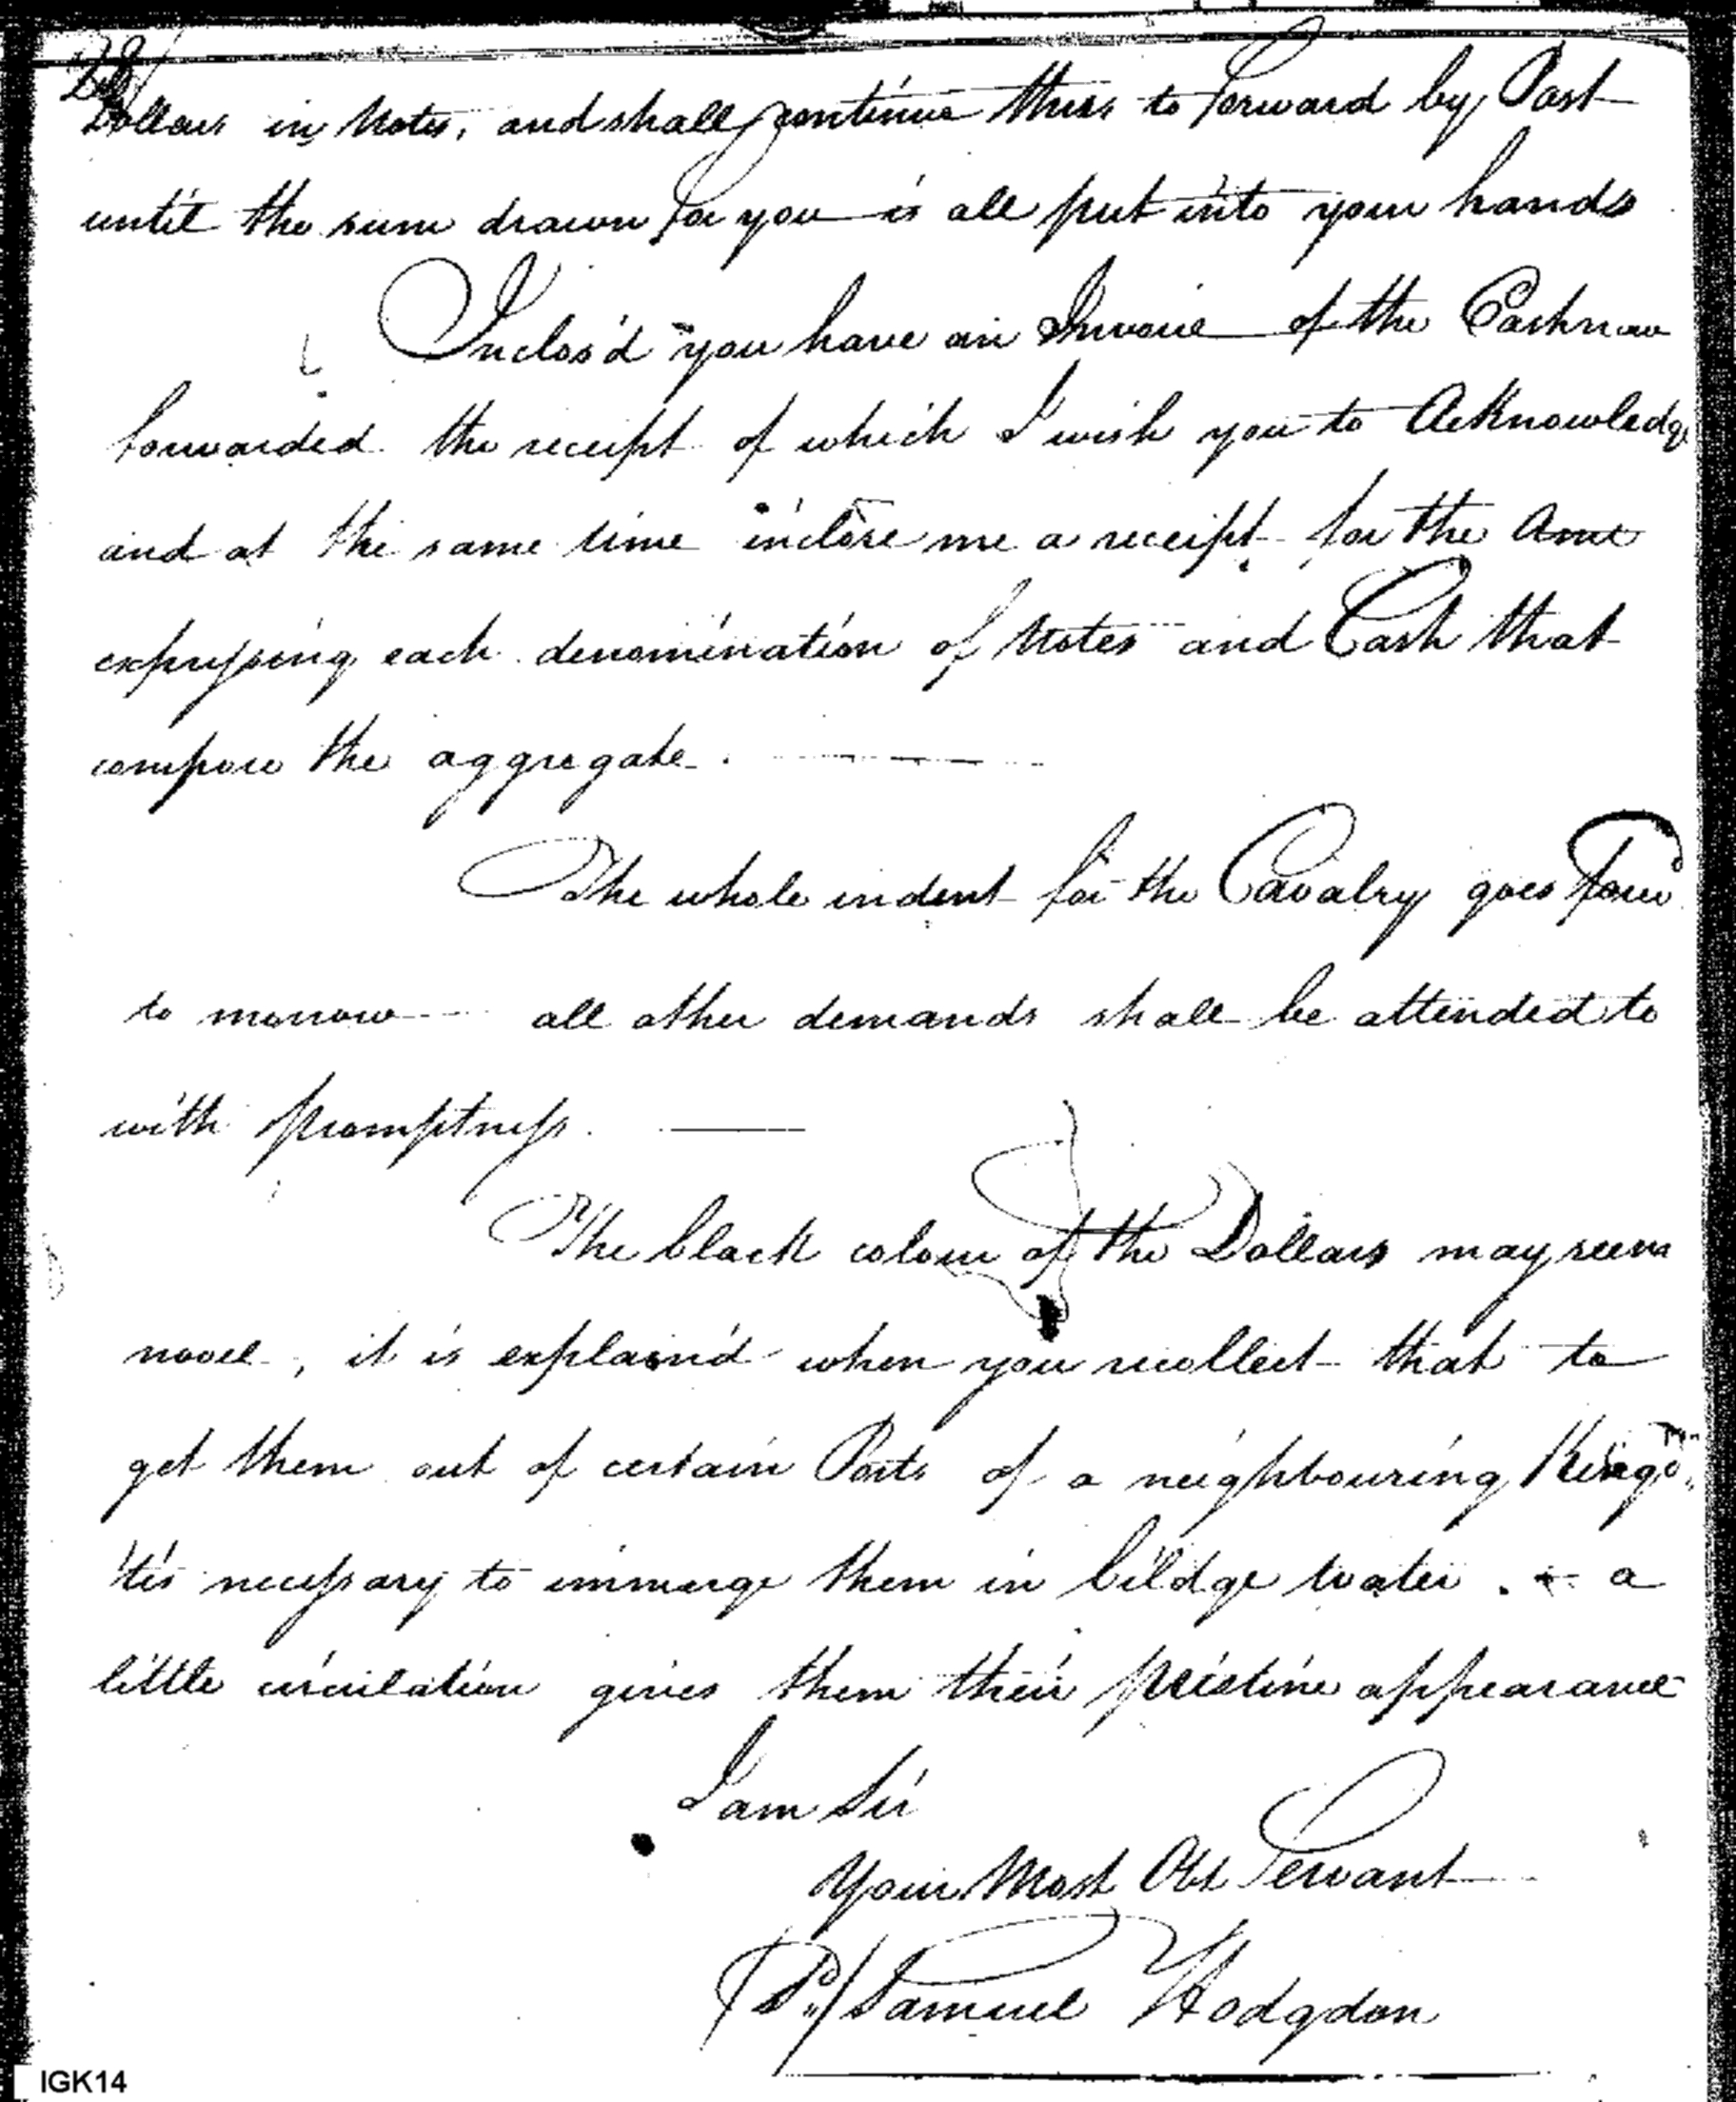 28
Dollars in Notes, and shall continue thus to forward by Post
until the sum drawn for you is all put into your hands
Inclos'd you have an Invoice of the Cash now
forwarded the receipt of which I wish you to Acknowledge
and at the same time inclose me a receipt for the Amt
expressing each denomination of Notes and Cash that
compose the aggregate.
The whole indent for the Cavalry goes
to morrow all other demands shall be attended to
with promptness.
The black colour of the Dollars may seem
novel, it is explain'd when you recollect that to
get them out of certain Ports of a neighbouring Kingdm
'tis necessary to immerge them in bildge water. a
little circulation gives them their pristine appearance
I am Sir
Your Most Obt Servant
Samuel Hodgdon
IGK14